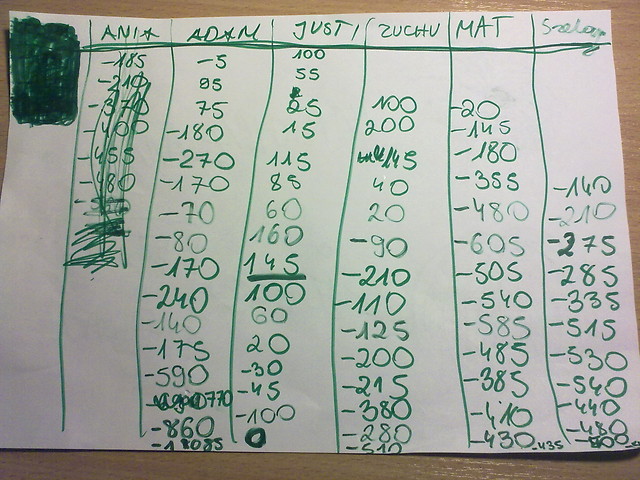 ANIA ADAM JUSTI ZUCHU MAT Szeląg
-185 -5 100
-210 95 55
-370 75 25 100 -20
-400 -180 15 200 -145
-455 -270 115 145 -180
-480 -170 85 40 -355 -140
-70 60 20 -480 -210
-80 160 -90 -605 -275
-170 145 -210 -505 -285
-240 100 -110 -540 -335
-140 60 -125 -585 -515
-175 20 -200 -485 -530
-590 -30 -215 -385 -540
770 -45 -380 -410 -440
-860 -100 -280 -430 -435 -480
0 -510